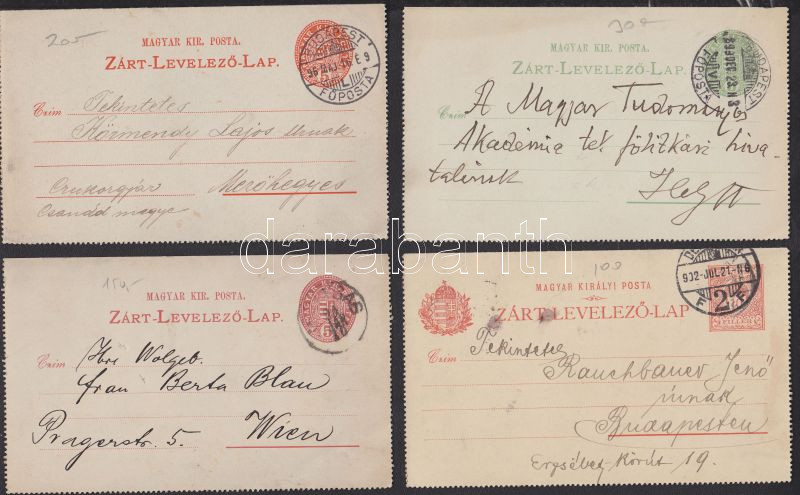 205
MAGYAR KIR. POSTA.
ZÁRT-LEVELEZŐ-LAP.
BUDAPEST
FŐPOSTA
Czim
Tekintetes
Körmendy Lajos Urnak
Czukorgyár Mezőhegyes
Csanád megye
MAGYAR KIR. POSTA.
ZÁRT-LEVELEZŐ-LAP.
BUDAPEST
FŐPOSTA
Czim
A Magyar Tudományos
Akadémia tek. főtitkári hiva-
talának
Helyt
150,-
MAGYAR KIR. POSTA.
ZÁRT-LEVELEZŐ-LAP.
Czim
Ihre Wolgeb.
frau Berta Blau
Pragerstr. 5. Wien
100
MAGYAR KIRÁLYI POSTA
ZÁRT-LEVELEZŐ-LAP
902-JUL.21-N6
F F
Czim
Tekintetes
Rauchbauer Jenő
úrnak
Budapesten
Erzsébet-körút 19.
darabanth